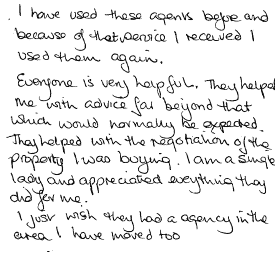 I have used these agents before and
because of that service I received I
used them again.
Everyone is very helpful. They helped
me with advice far beyond that
which would normally be expected.
They helped with the negotiation of the
property I was buying. I am a single
lady and appreciated everything they
did for me.
I just wish they had a agency in the
area I have moved too